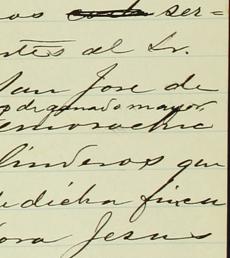 os ~~esta~~ ser=
ntes al Sr.
San Jose de
s de ganado mayor,
emorachic
linderos que
e dicha finca
ora Jesus